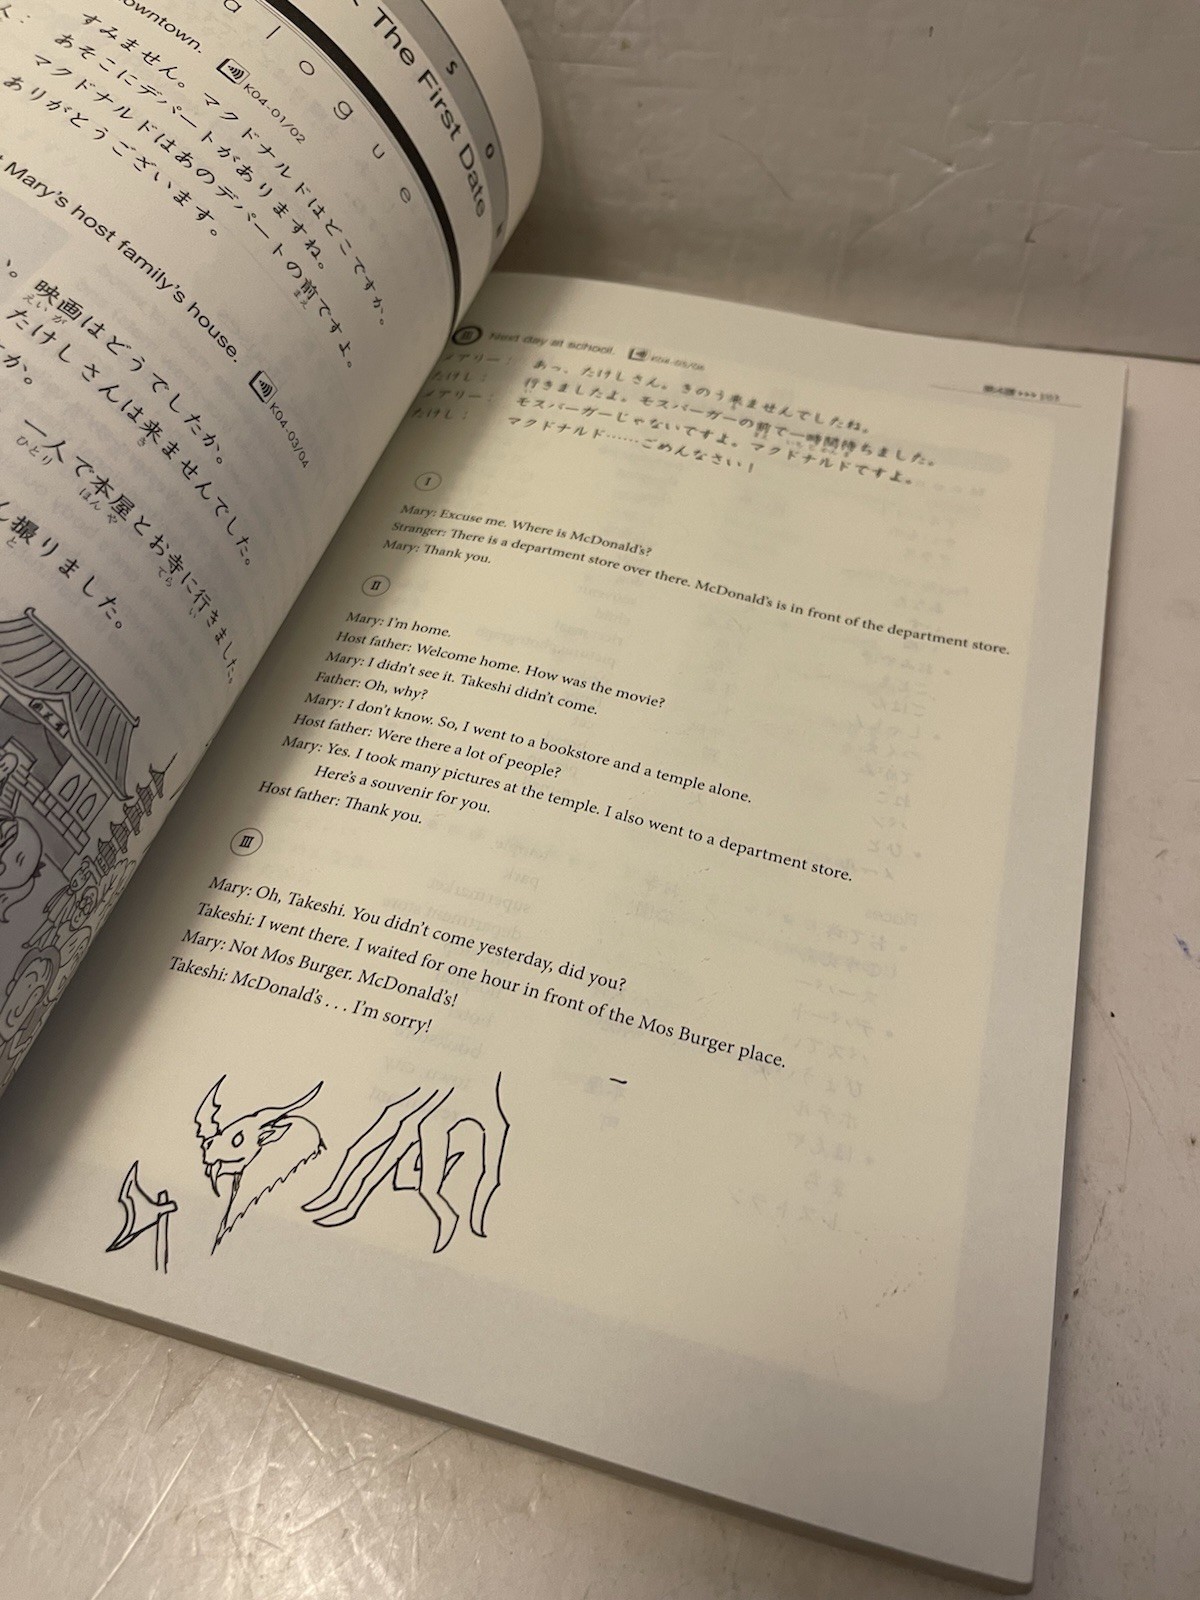 The First Date
D i a l o g u e
owntown. K04-01/02
すみません。マクドナルドはどこですか。
あそこにデパートがありますね。
マクドナルドはあのデパートの前ですよ。
まえ
ありがとうございます。
Mary's host family's house. K04-03/04
映画はどうでしたか。
えいが
たけしさんは来ませんでした。
き
か。
一人で本屋とお寺に行きました。
ひとり ほんや てら い
撮りました。
と
III Next day at school. K04-05/06
第4課 ▸▸▸ 103
メアリー： あっ、たけしさん。きのう来ませんでしたね。
たけし： 行きましたよ。モスバーガーの前で一時間待ちました。
メアリー： モスバーガーじゃないですよ。マクドナルドですよ。
たけし： マクドナルド……ごめんなさい！
I
Mary: Excuse me. Where is McDonald's?
Stranger: There is a department store over there. McDonald's is in front of the department store.
Mary: Thank you.
II
Mary: I'm home.
Host father: Welcome home. How was the movie?
Mary: I didn't see it. Takeshi didn't come.
Father: Oh, why?
Mary: I don't know. So, I went to a bookstore and a temple alone.
Host father: Were there a lot of people?
Mary: Yes. I took many pictures at the temple. I also went to a department store.
Here's a souvenir for you.
Host father: Thank you.
III
Mary: Oh, Takeshi. You didn't come yesterday, did you?
Takeshi: I went there. I waited for one hour in front of the Mos Burger place.
Mary: Not Mos Burger. McDonald's!
Takeshi: McDonald's . . . I'm sorry!